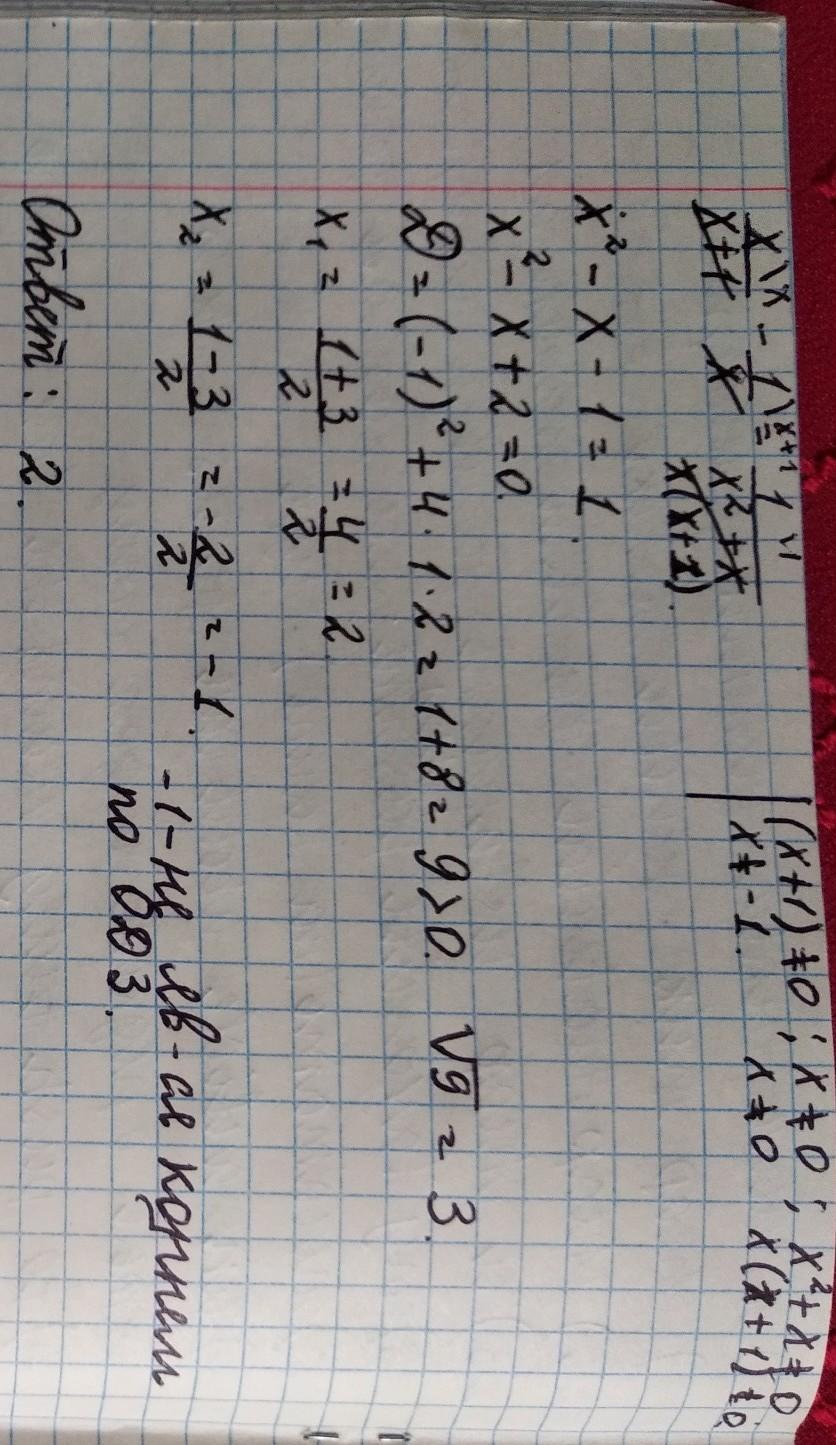 x\x / x+1 - 1\x+1 / x = 1\1 / x²+x | (x+1)≠0 ; x≠0 ; x²+x≠0
x(x+1). x≠-1. x≠0 x(x+1)≠0
x² - x - 1 = 1.
x² - x + 2 = 0.
D = (-1)² + 4·1·2 = 1+8 = 9>0. √9 = 3.
x₁ = 1+3 / 2 = 4 / 2 = 2
x₂ = 1-3 / 2 = -2 / 2 = -1. -1 - не яв-ся корнем
по ОДЗ.
Ответ: 2.